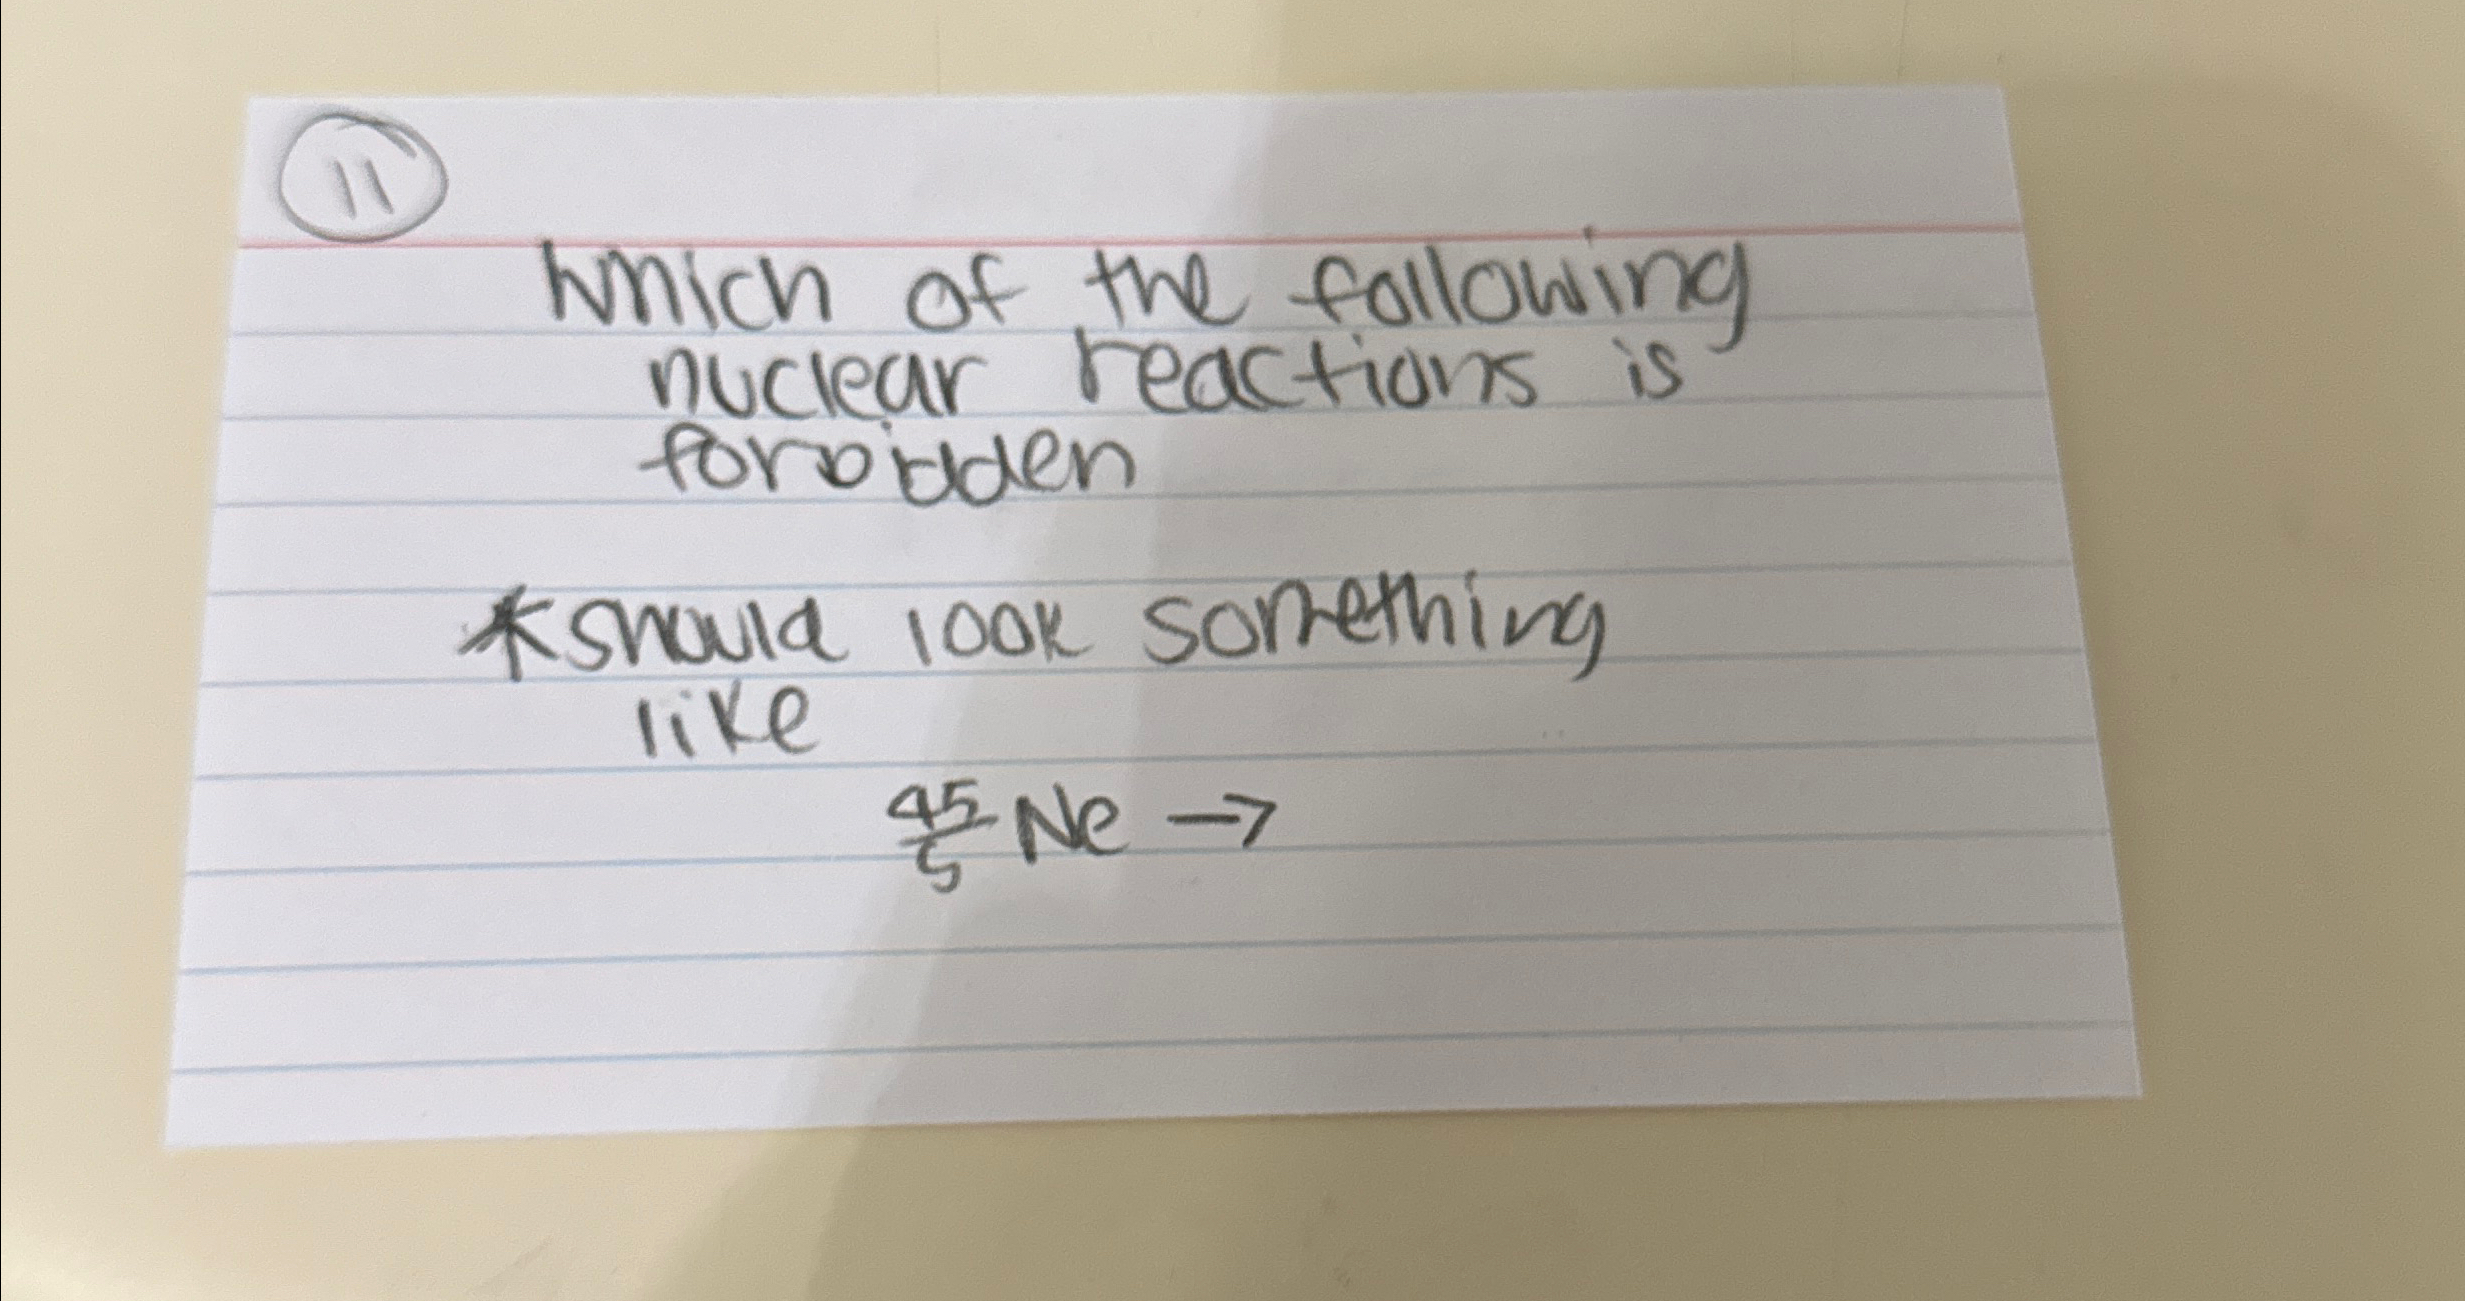 11
Which of the following
nuclear reactions is
forbidden
*should look something
like
45/5 Ne →